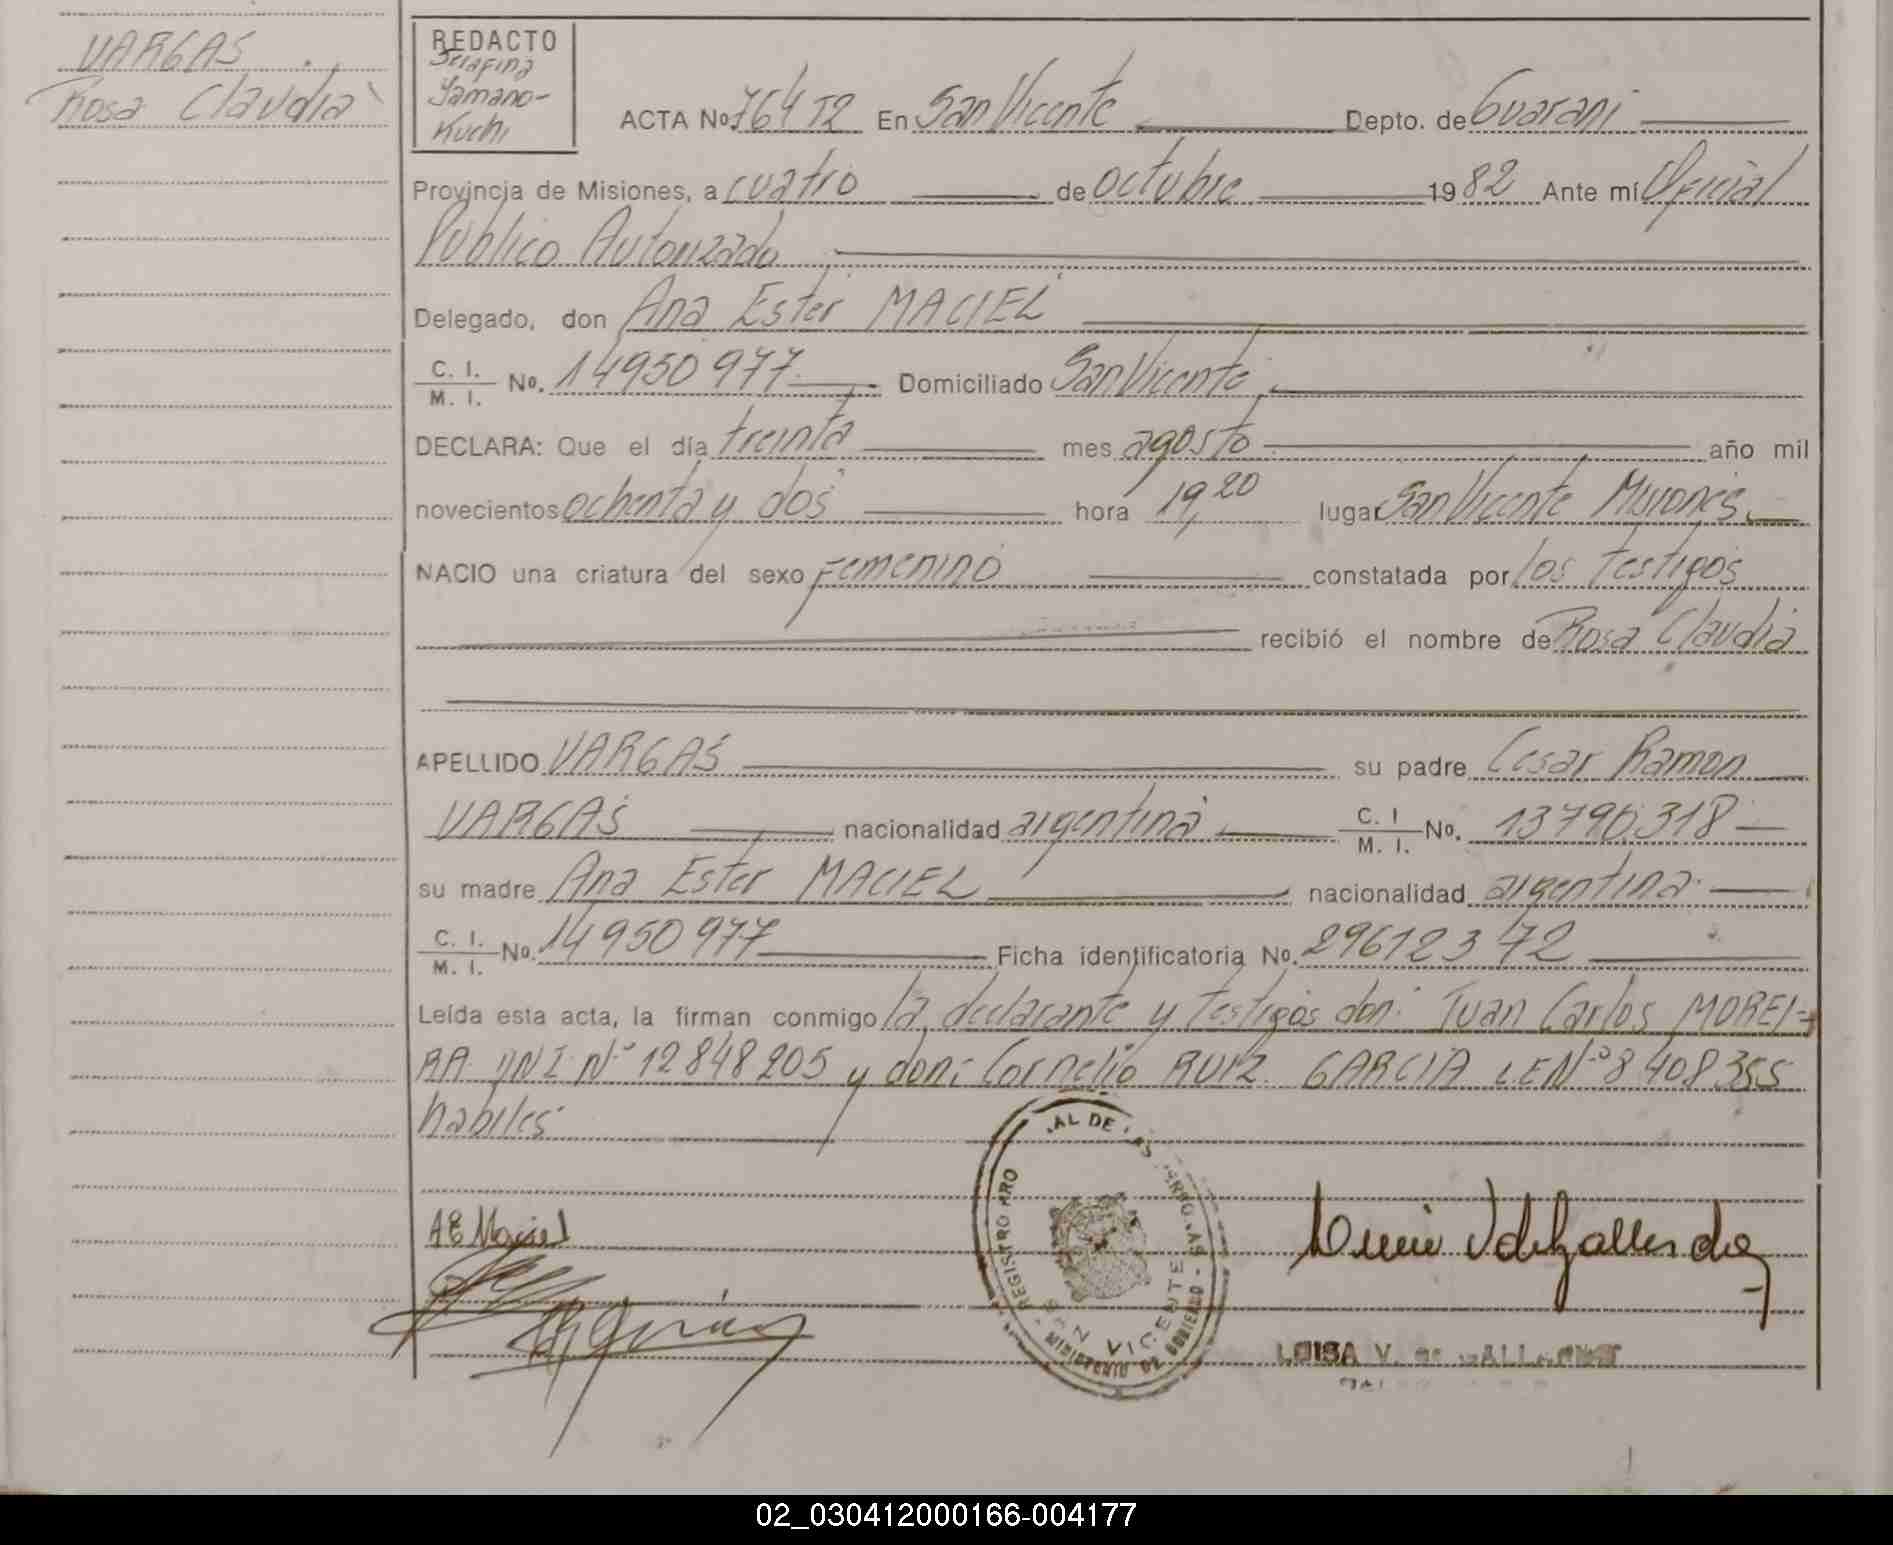 VARGAS
Rosa Claudia
REDACTO
Serafina
Yamano-
Kuchi
ACTA No. 764 T2 En San Vicente Depto. de Guarani
Provincia de Misiones, a cuatro de octubre 1982 Ante mí Oficial
Publico Autorizado
Delegado, don Ana Ester MACIEL
C. I. M. I. No. 14950977 Domiciliado San Vicente
DECLARA: Que el día treinta mes agosto año mil
novecientos ochenta y dos hora 19,20 lugar San Vicente Misiones
NACIO una criatura del sexo Femenino constatada por los testigos
recibió el nombre de Rosa Claudia
APELLIDO VARGAS su padre Cesar Ramon
VARGAS nacionalidad argentina C. I M. I. No. 13790318
su madre Ana Ester MACIEL nacionalidad argentina
C. I. M. I. No. 14950977 Ficha identificatoria No. 29612372
Leída esta acta, la firman conmigo la declarante y testigos don: Juan Carlos MOREI=
RA DNI Nº 12848205 y don: Cornelio RUIZ GARCIA LE Nº 8408355
habiles
AE Maciel
SAN VICENTE
MINISTERIO DE GOBIERNO
LUISA V. de
02_030412000166-004177